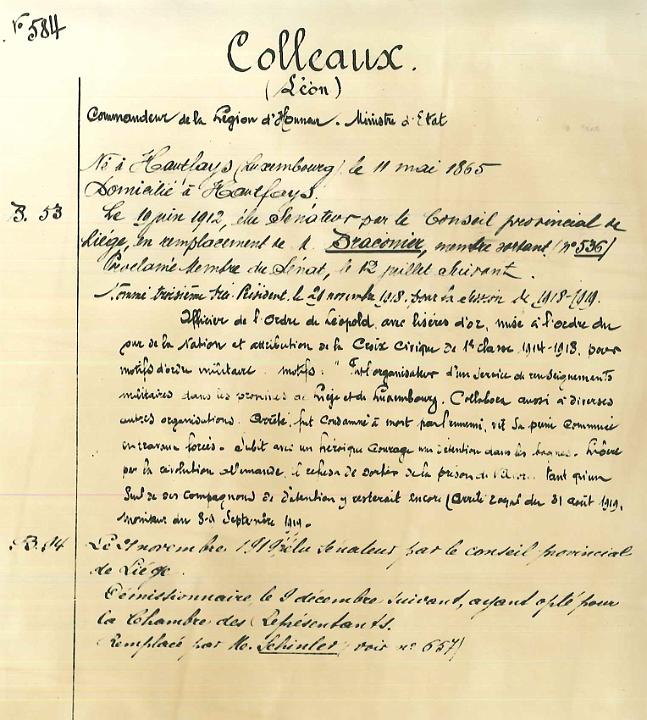 N° 584
Colleaux.
(Léon)
Commandeur de la Légion d'Honneur. Ministre d'Etat
Né à Hautfays (Luxembourg), le 11 mai 1865
Domicilié à Hautfays.
B. 53 Le 19 juin 1912, élu Sénateur par le Conseil provincial de
Liége, en remplacement de M. Braconier, membre sortant (n° 536)
Proclamé Membre du Sénat, le 12 juillet suivant.
Nommé troisième Vice-Président, le 21 novembre 1918, pour la session de 1918-1919.
Officier de l'Ordre de Léopold, avec liserés d'or, mise à l'ordre du
jour de la Nation et attribution de la Croix Civique de 1e classe, 1914-1918, pour
motifs d'ordre militaire. motifs: " Fut l'organisateur d'un service de renseignements
militaires dans les provinces de Liège et de Luxembourg. Collabora aussi à diverses
autres organisations. Arrêté, fut condamné à mort par l'ennemi, vit sa peine commuée
en travaux forcés. Subit avec un héroïque courage sa détention dans les bagnes. Libéré
par la révolution allemande, il refusa de sortir de la prison de tant qu'un
seul de ses compagnons de détention y resterait encore (Arrêté royal du 31 août 1919,
Moniteur du 3-4 Septembre 1919.
B. 14 Le 27 novembre 1919 élu Sénateur par le conseil provincial
de Liége.
Démissionnaire le 9 décembre suivant, ayant opté pour
la Chambre des Représentants.
(Remplacé par M. Schinler, voir n° 657)